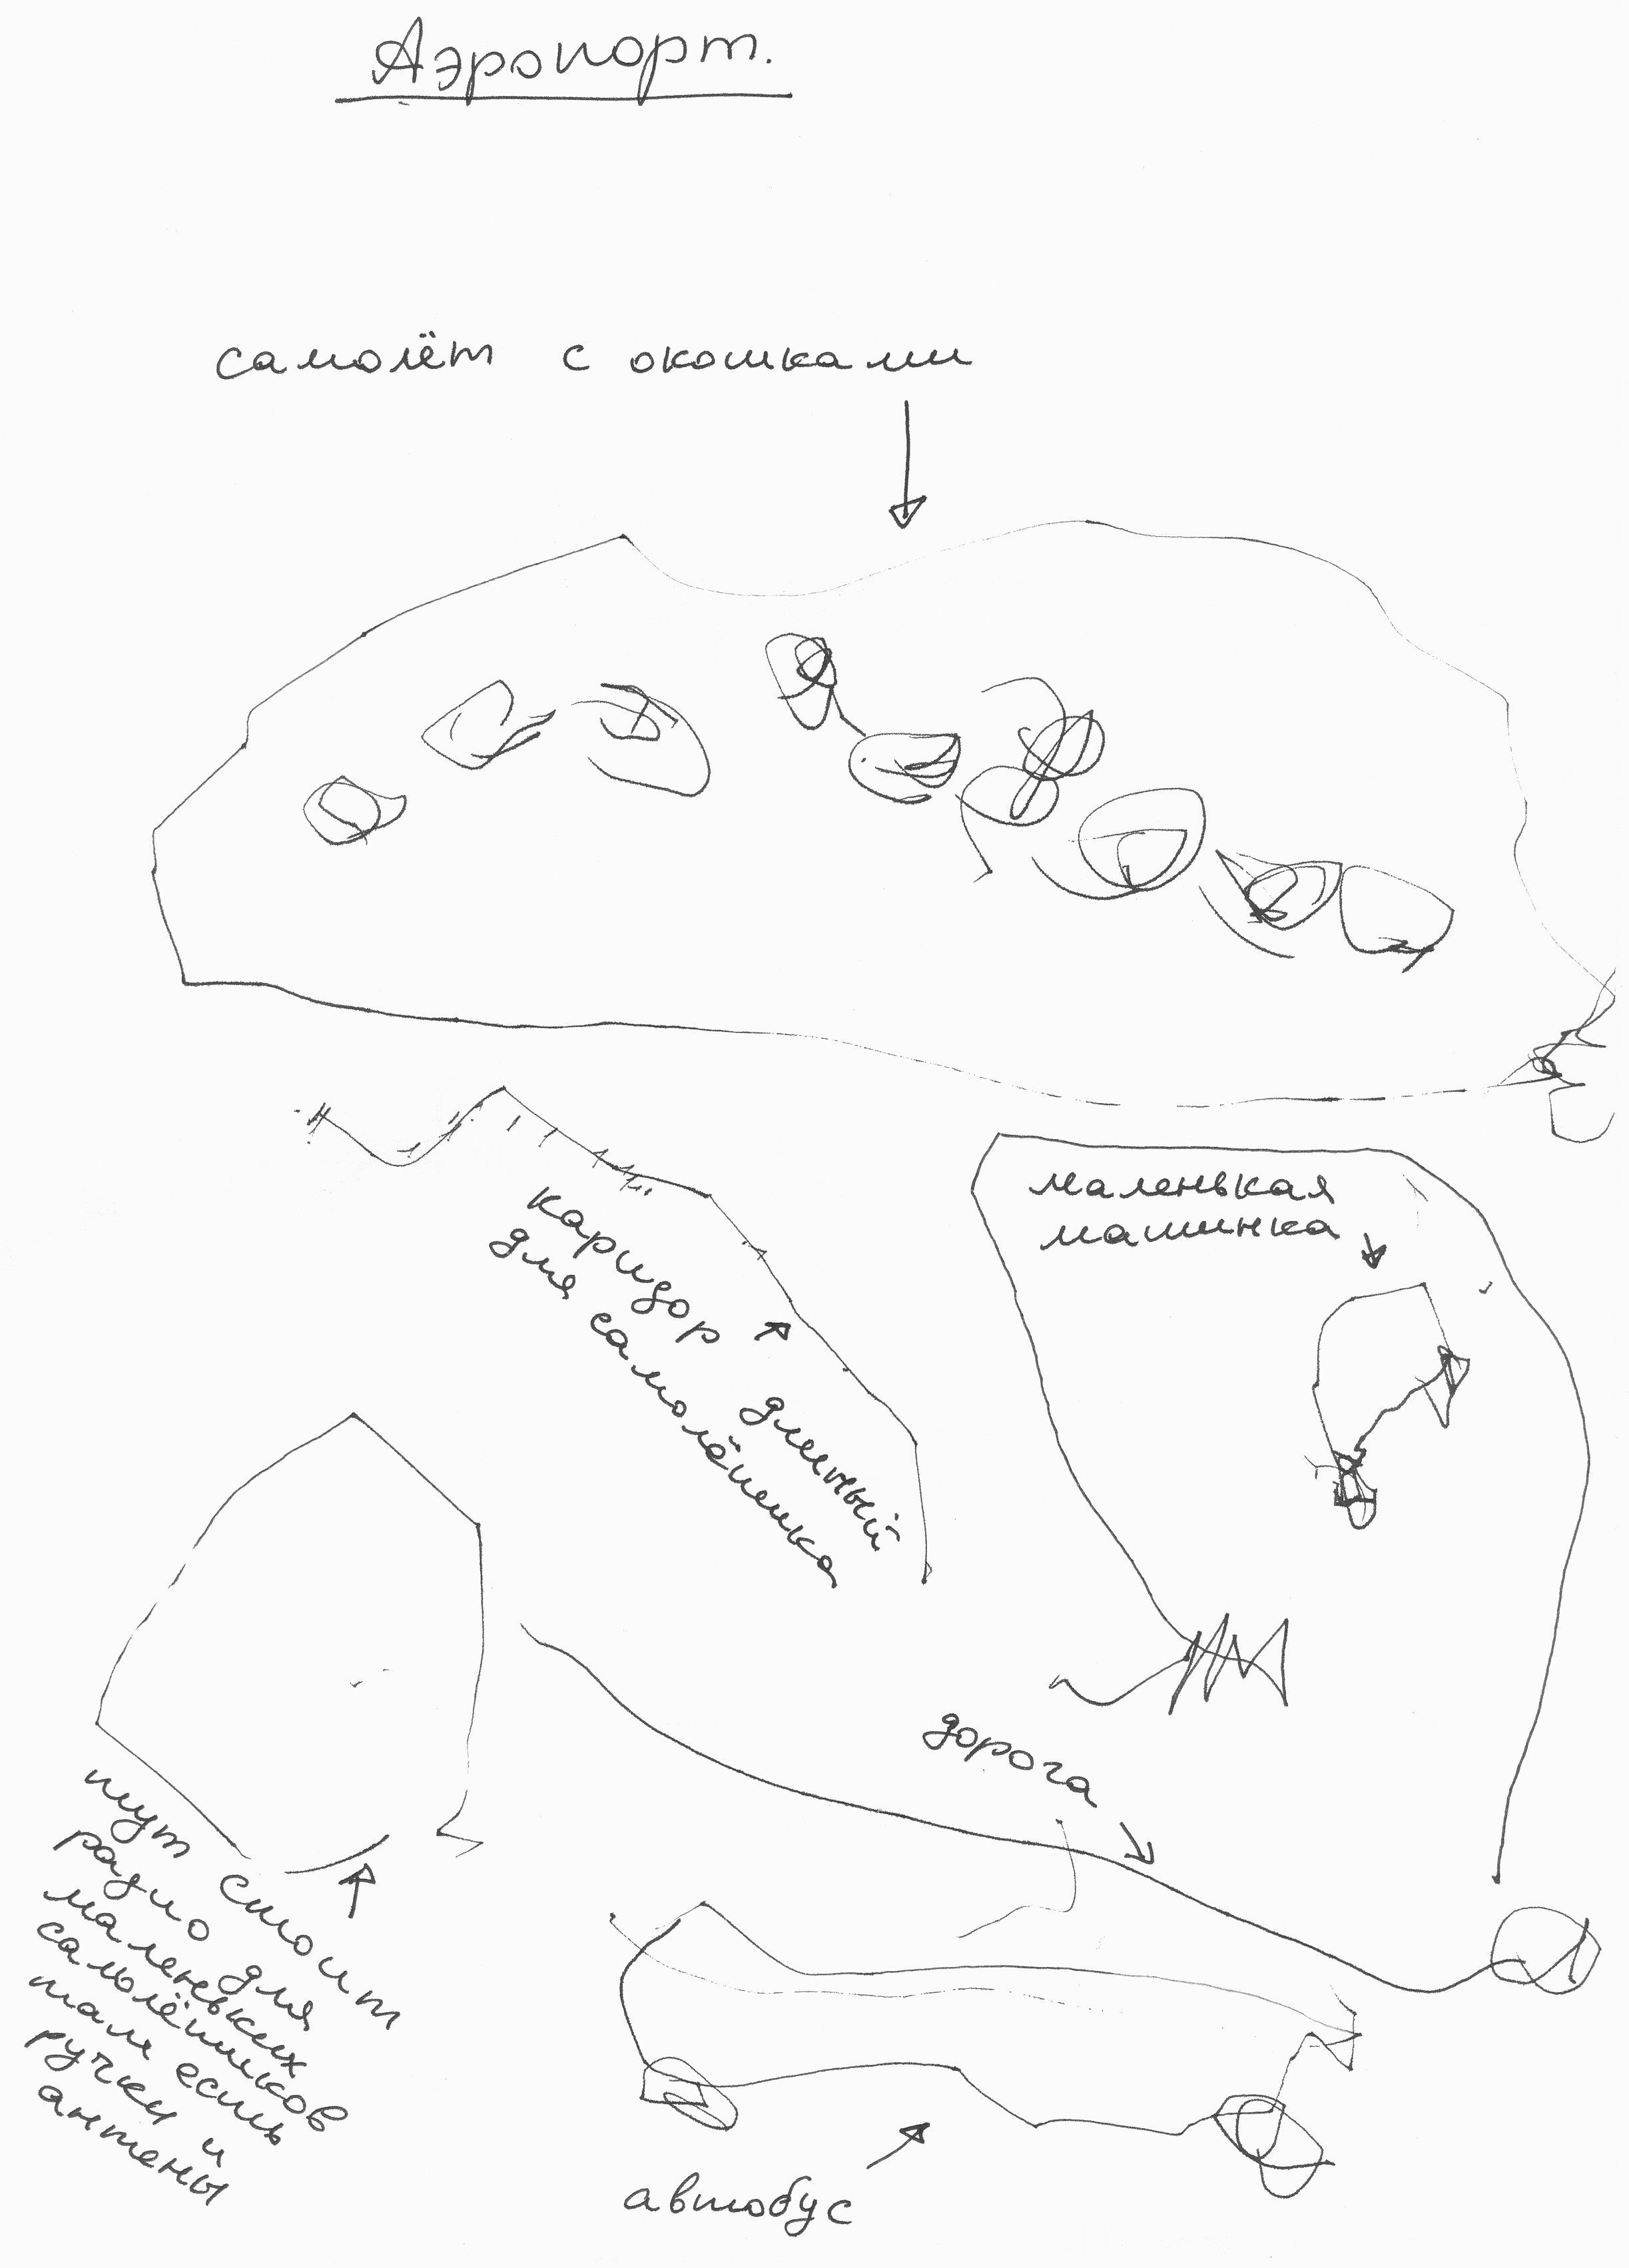 Аэропорт.
самолёт с окошками
маленькая
машинка
каридор длинный
для самолётика
дорога
тут стоит
радио для
маленьких
самолётиков
там есть
ручки и
антены
автобус